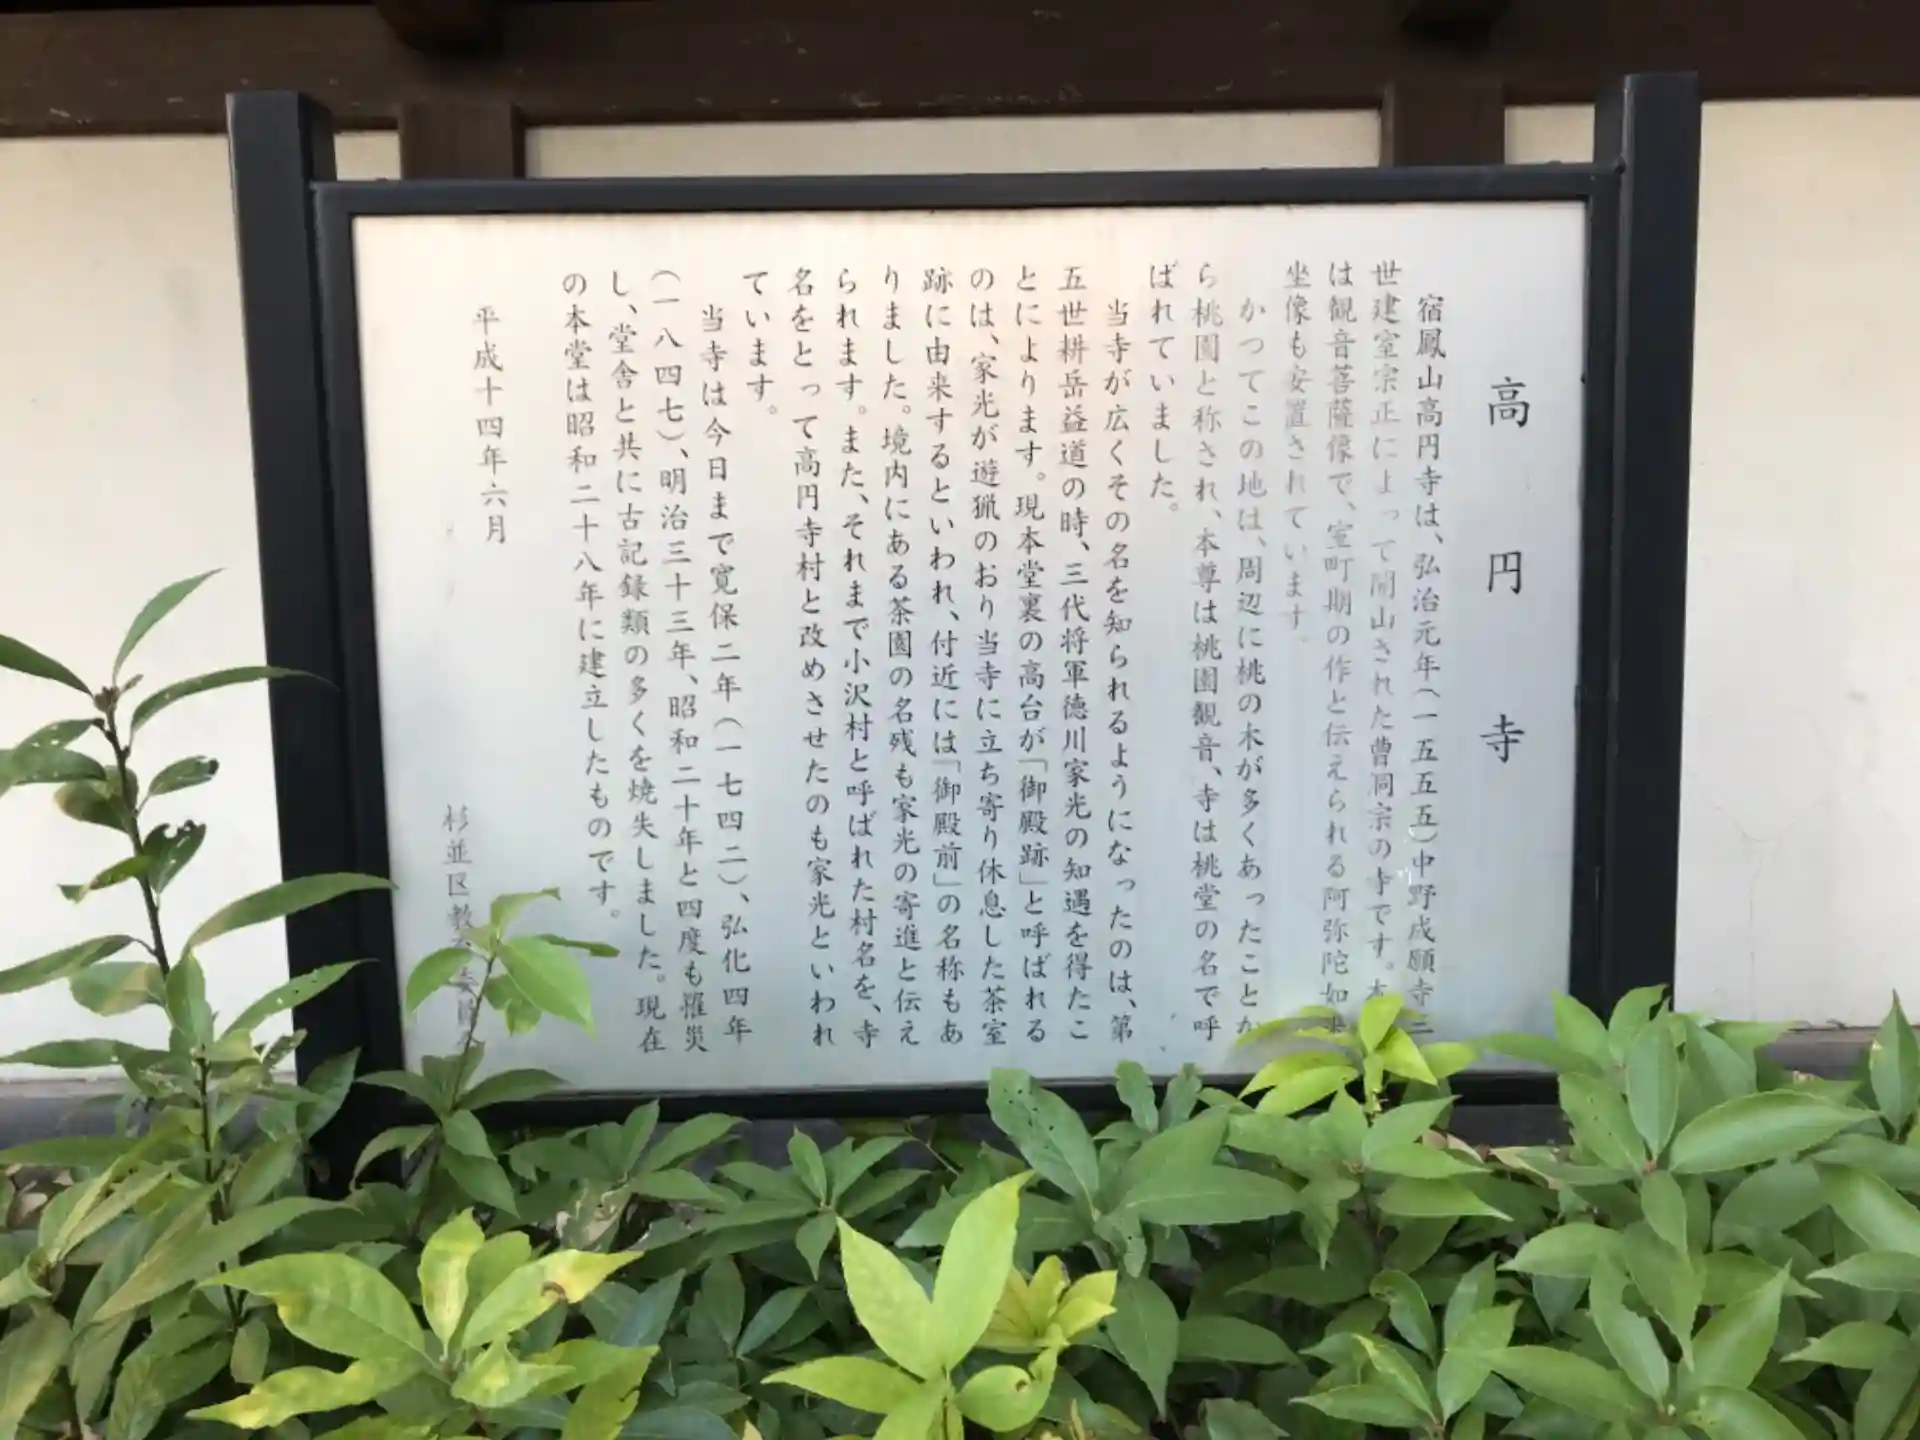 高円寺
宿鳳山高円寺は、弘治元年(一五五五)中野成願寺三
世建室宗正によって開山された曹洞宗の寺です。本
は観音菩薩像で、室町期の作と伝えられる阿弥陀如来
坐像も安置されています。
かつてこの地は、周辺に桃の木が多くあったことか
ら桃園と称され、本尊は桃園観音、寺は桃堂の名で呼
ばれていました。
当寺が広くその名を知られるようになったのは、第
五世耕岳益道の時、三代将軍徳川家光の知遇を得たこ
とによります。現本堂裏の高台が「御殿跡」と呼ばれる
のは、家光が遊猟のおり当寺に立ち寄り休息した茶室
跡に由来するといわれ、付近には「御殿前」の名称もあ
りました。境内にある茶園の名残も家光の寄進と伝え
られます。また、それまで小沢村と呼ばれた村名を、寺
名をとって高円寺村と改めさせたのも家光といわれ
ています。
当寺は今日まで寛保二年(一七四二)、弘化四年
(一八四七)、明治三十三年、昭和二十年と四度も罹災
し、堂舎と共に古記録類の多くを焼失しました。現在
の本堂は昭和二十八年に建立したものです。
平成十四年六月
杉並区教育委員会